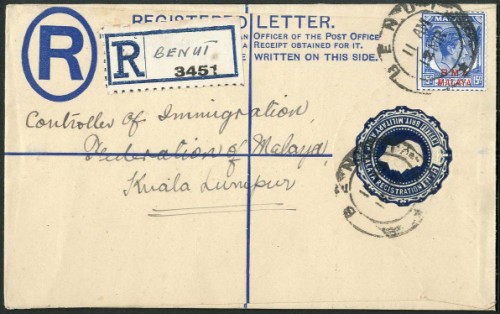 REGISTERED LETTER.
AN OFFICER OF THE POST OFFICE
A RECEIPT OBTAINED FOR IT.
BE WRITTEN ON THIS SIDE.
R
R BENUT
3451
BENUT
11 AP
BMA
MALAYA
Controller of Immigration,
Federation of Malaya
Kuala Lumpur
BRIT MILITARY
MALAYA REGISTRATION
BENU